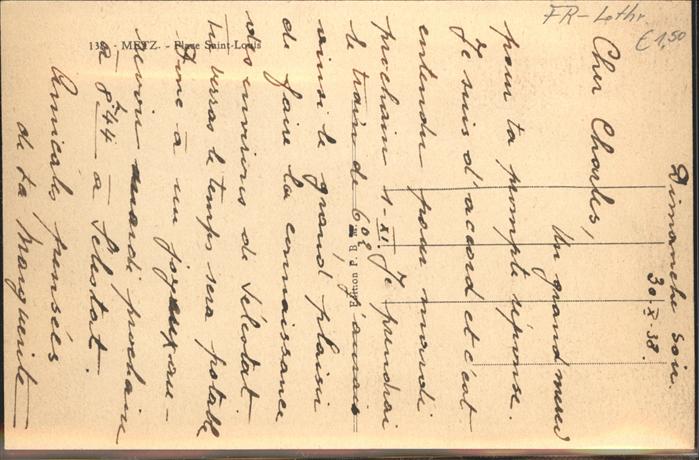 FR-Lothr.
€ 1,50
138. METZ. - Place Saint-Louis
Edition P. B. M.
Dimanche soir.
30.X.38.
Cher Charles,
Un grand merci
pour ta prompte réponse.
Je suis d'accord et c'est
entendu pour mardi
prochain 1-XI. Je prendrai
le train de 6 02 j'aurais
ainsi le grand plaisir
de faire la connaissance
des environs de Sélestat
tu verras le temps sera potable
Donc à un joyeux au-
revoir mardi prochain
à 8h44 à Sélestat.
Amicales pensées
de ta Marguerite